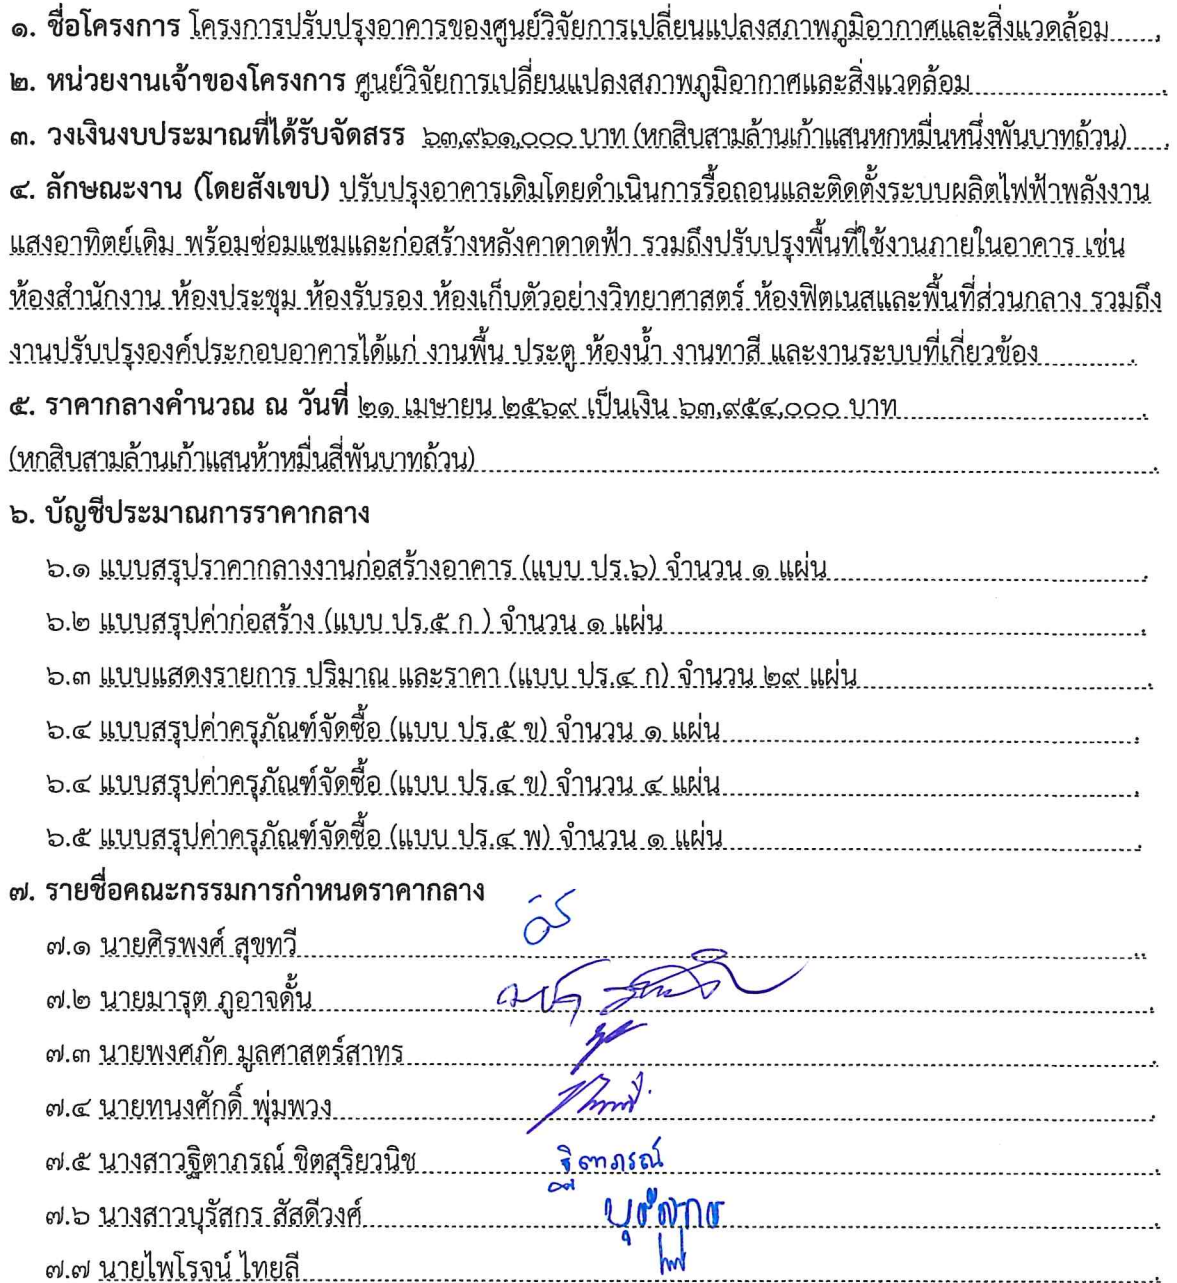 ๑. ชื่อโครงการ โครงการปรับปรุงอาคารของศูนย์วิจัยการเปลี่ยนแปลงสภาพภูมิอากาศและสิ่งแวดล้อม
๒. หน่วยงานเจ้าของโครงการ ศูนย์วิจัยการเปลี่ยนแปลงสภาพภูมิอากาศและสิ่งแวดล้อม
๓. วงเงินงบประมาณที่ได้รับจัดสรร ๖๓,๙๖๑,๐๐๐ บาท (หกสิบสามล้านเก้าแสนหกหมื่นหนึ่งพันบาทถ้วน)
๔. ลักษณะงาน (โดยสังเขป) ปรับปรุงอาคารเดิมโดยดำเนินการรื้อถอนและติดตั้งระบบผลิตไฟฟ้าพลังงาน
แสงอาทิตย์เดิม พร้อมซ่อมแซมและก่อสร้างหลังคาดาดฟ้า รวมถึงปรับปรุงพื้นที่ใช้งานภายในอาคาร เช่น
ห้องสำนักงาน ห้องประชุม ห้องรับรอง ห้องเก็บตัวอย่างวิทยาศาสตร์ ห้องฟิตเนสและพื้นที่ส่วนกลาง รวมถึง
งานปรับปรุงองค์ประกอบอาคารได้แก่ งานพื้น ประตู ห้องน้ำ งานทาสี และงานระบบที่เกี่ยวข้อง
๕. ราคากลางคำนวณ ณ วันที่ ๒๑ เมษายน ๒๕๖๙ เป็นเงิน ๖๓,๙๕๔,๐๐๐ บาท
(หกสิบสามล้านเก้าแสนห้าหมื่นสี่พันบาทถ้วน)
๖. บัญชีประมาณการราคากลาง
๖.๑ แบบสรุปราคากลางงานก่อสร้างอาคาร (แบบ ปร.๖) จำนวน ๑ แผ่น
๖.๒ แบบสรุปค่าก่อสร้าง (แบบ ปร.๕ ก ) จำนวน ๑ แผ่น
๖.๓ แบบแสดงรายการ ปริมาณ และราคา (แบบ ปร.๔ ก) จำนวน ๒๙ แผ่น
๖.๔ แบบสรุปค่าครุภัณฑ์จัดซื้อ (แบบ ปร.๕ ข) จำนวน ๑ แผ่น
๖.๔ แบบสรุปค่าครุภัณฑ์จัดซื้อ (แบบ ปร.๔ ข) จำนวน ๔ แผ่น
๖.๕ แบบสรุปค่าครุภัณฑ์จัดซื้อ (แบบ ปร.๔ พ) จำนวน ๑ แผ่น
๗. รายชื่อคณะกรรมการกำหนดราคากลาง
๗.๑ นายศิรพงศ์ สุขทวี
๗.๒ นายมารุต ภูอาจดั้น
๗.๓ นายพงศภัค มูลศาสตร์สาทร
๗.๔ นายทนงศักดิ์ พุ่มพวง
๗.๕ นางสาวฐิตาภรณ์ ชิตสุริยวนิช ฐิตาภรณ์
๗.๖ นางสาวบุรัสกร สัสดีวงศ์ บุรัสกร
๗.๗ นายไพโรจน์ ไทยลี